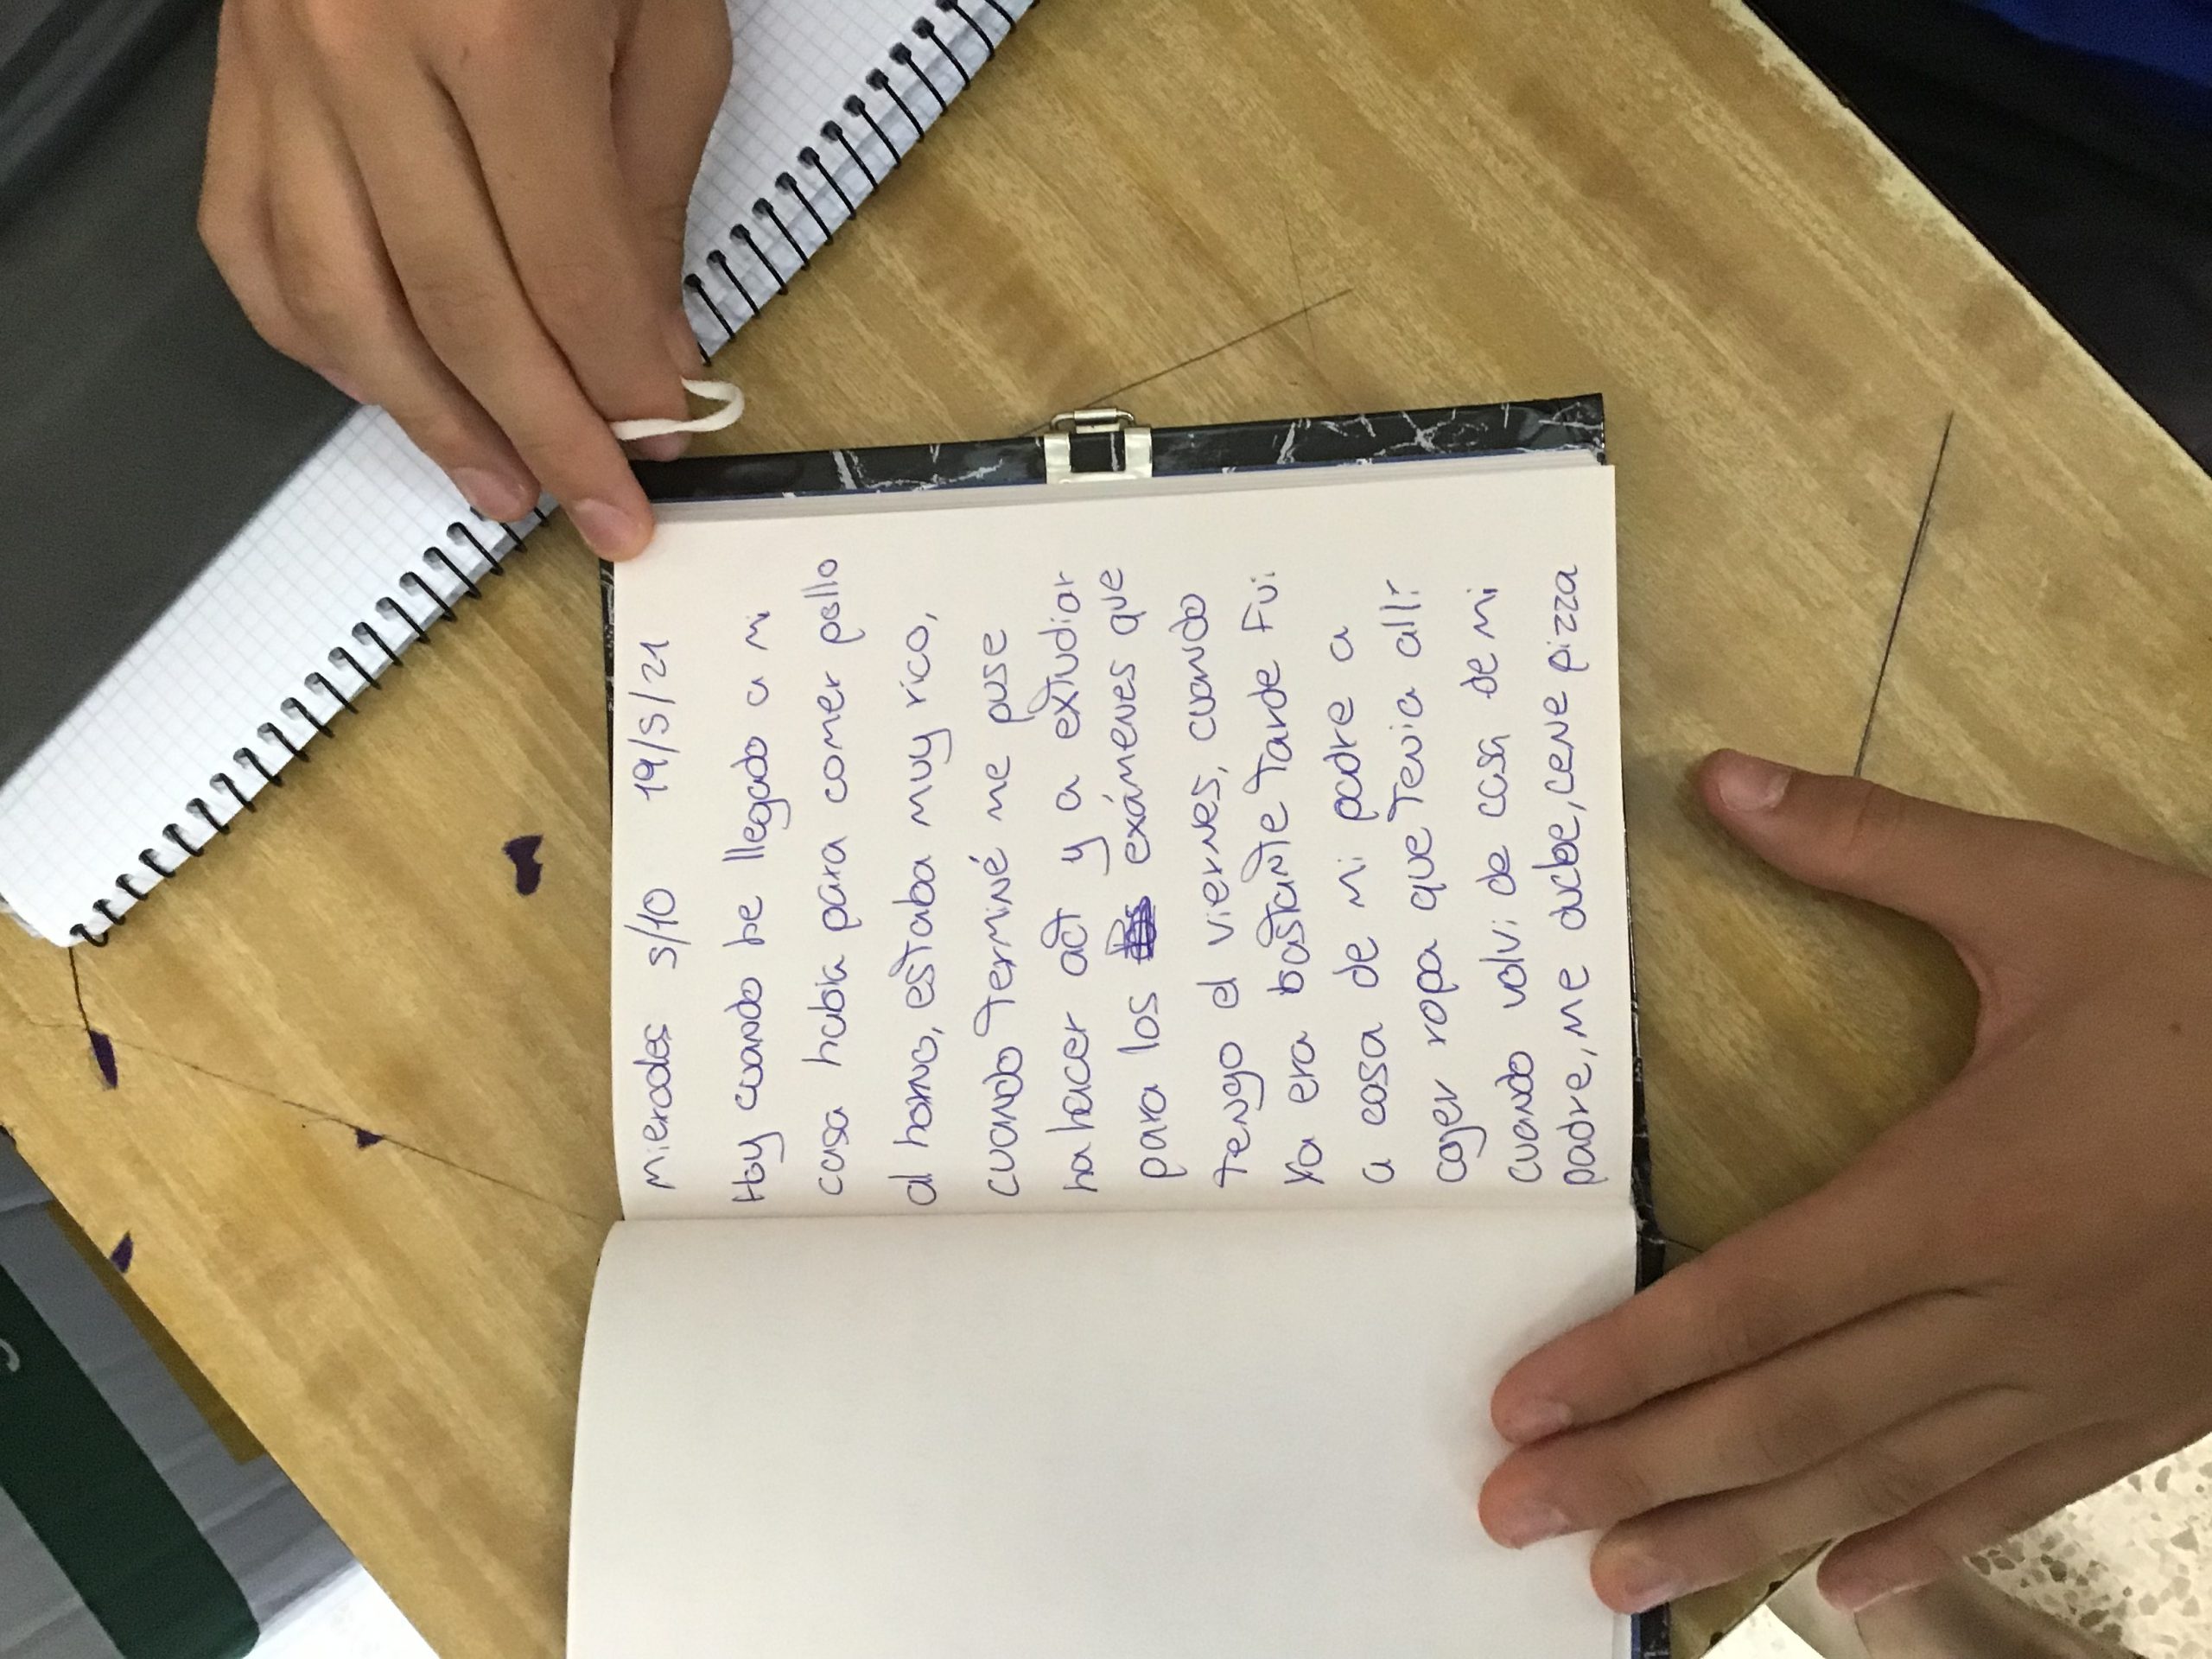 mierooles 5/10 19/5/21
Hoy cuando he llegado a mi
casa habia para comer pollo
al horno, estaba muy rico,
cuando terminé me puse
ha hacer act y a extudiar
para los exámenes que
tengo el viernes, cuando
Ya era bastante tarde fui
a casa de mi padre a
cojer ropa que tenia allí
cuando volvi de casa de mi
padre, me duche, cene pizza